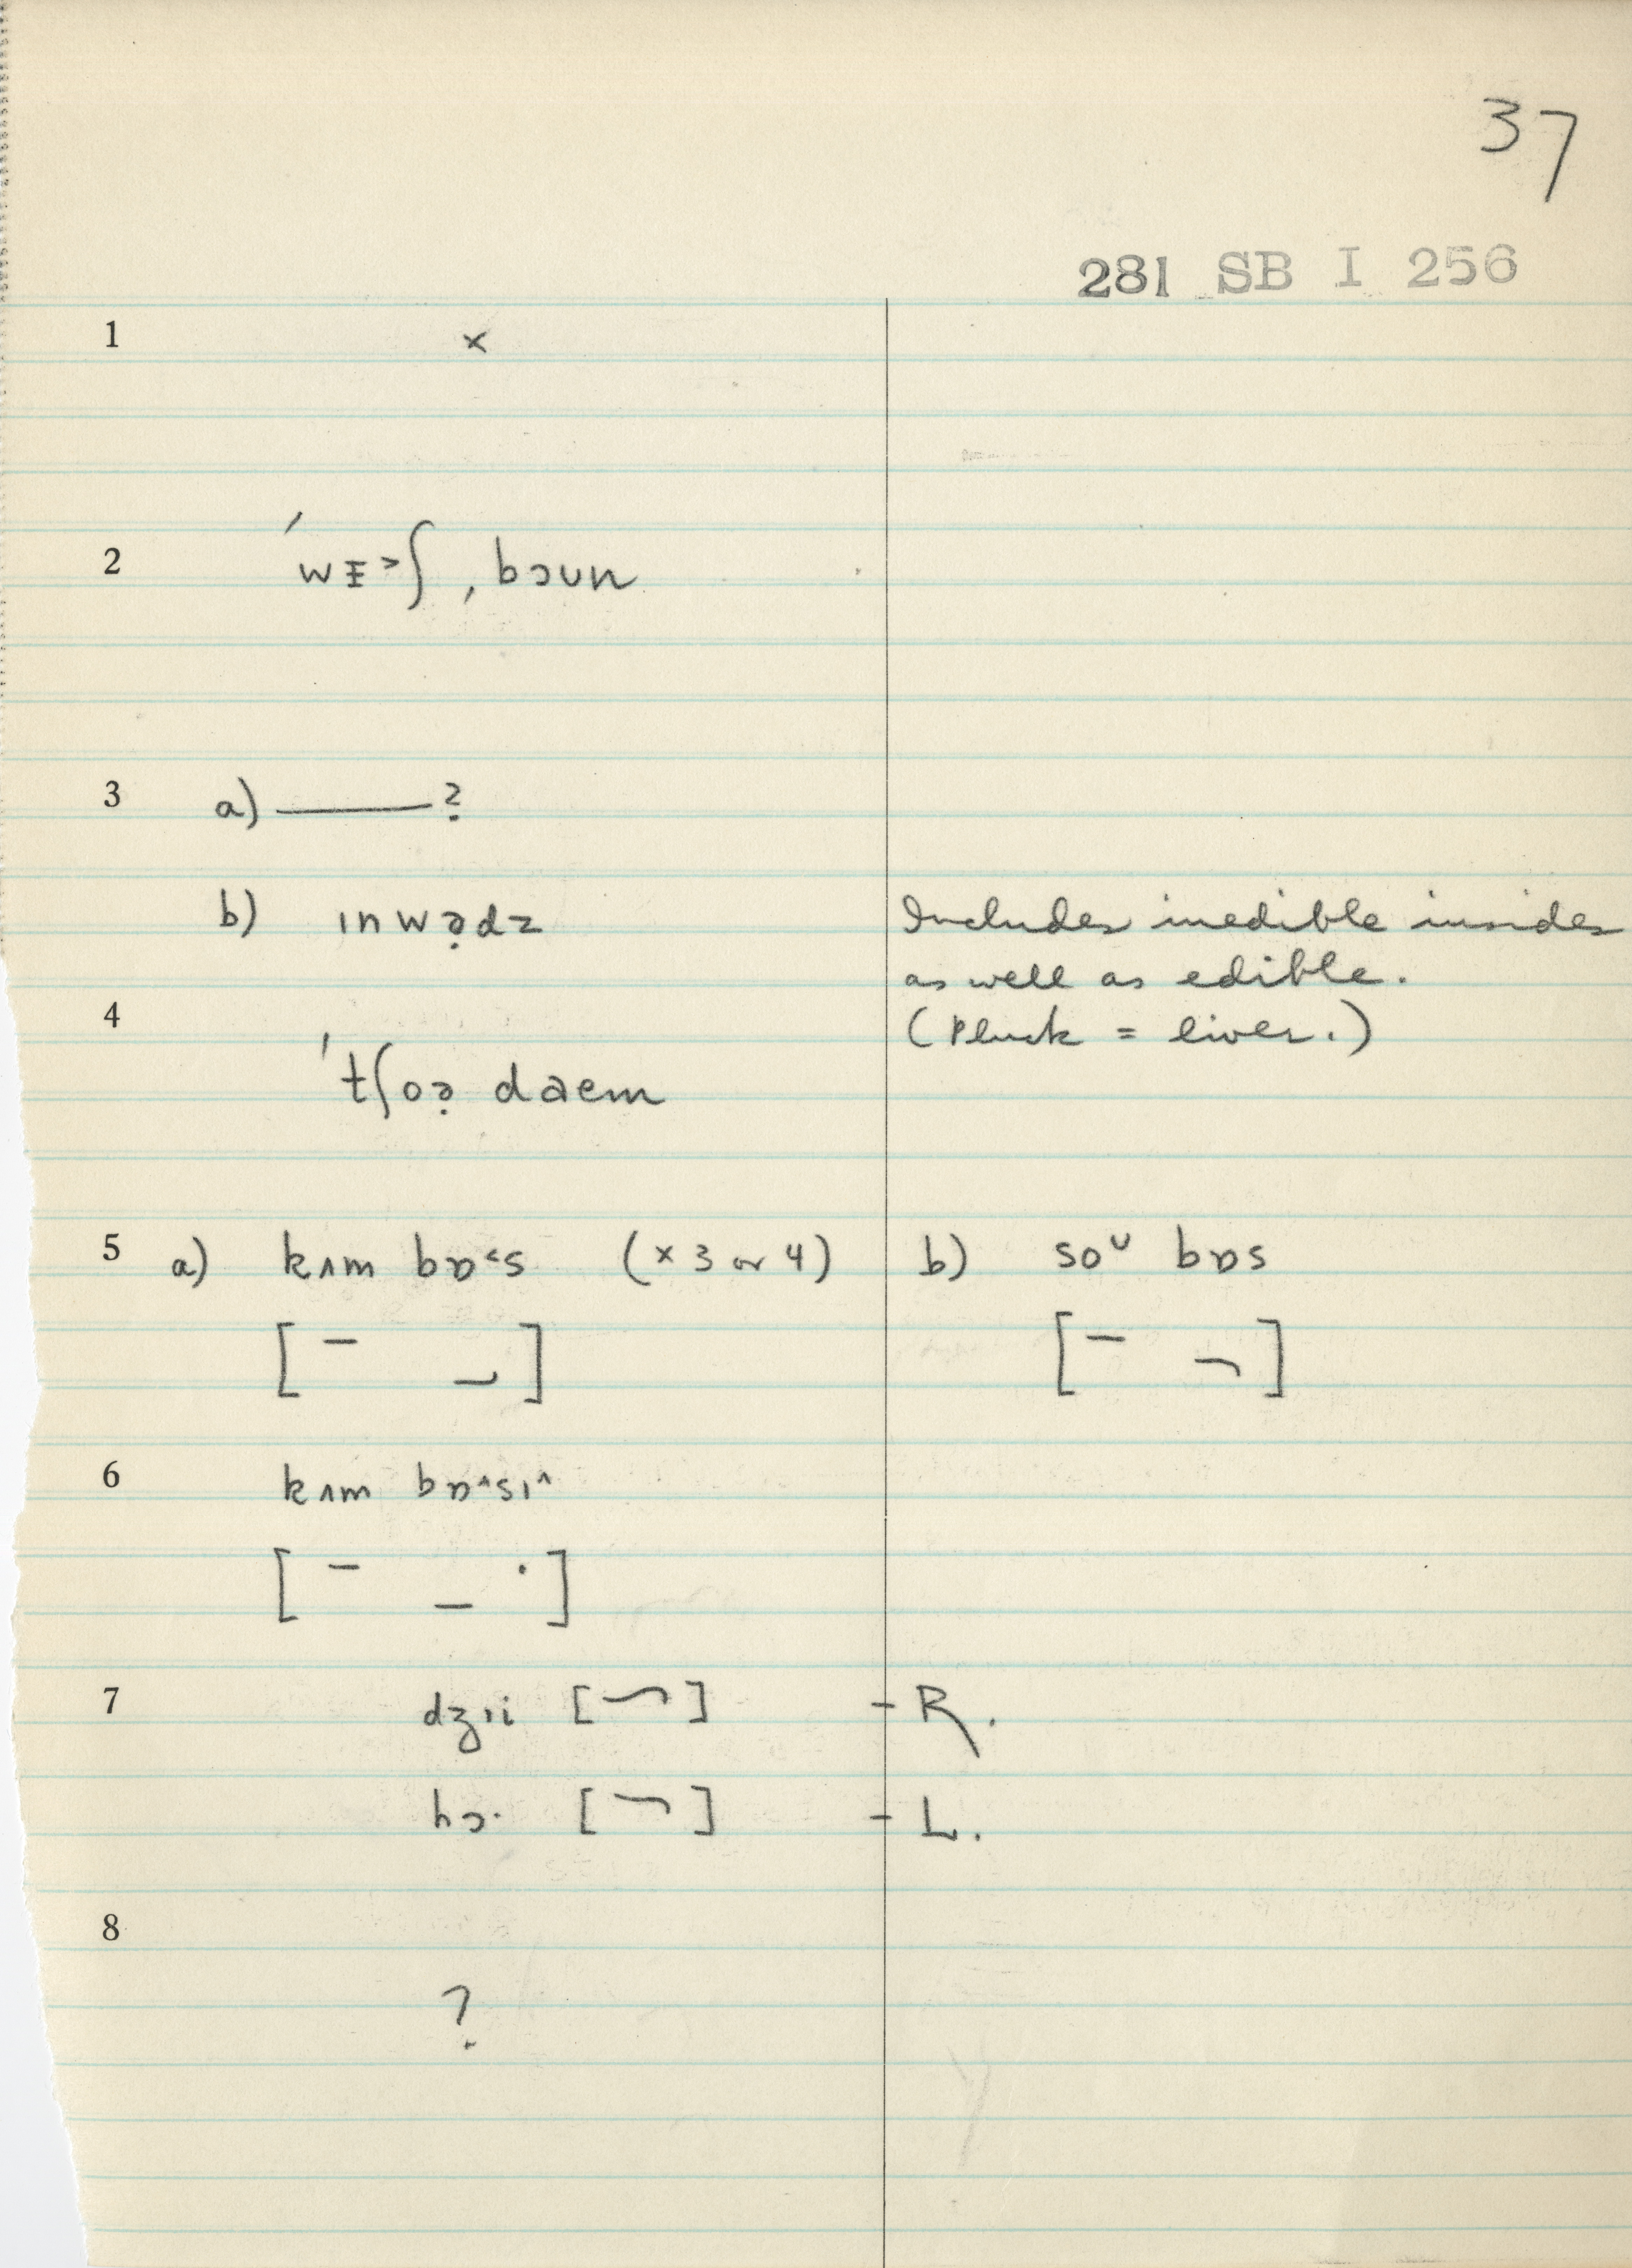 37
281 SB I 256
1 ×
2 ˈwɪ̵˃ʃ, bɔun
3 a) ———?
b) ɪnwə̣dz Includes inedible insides
as well as edible.
4 (Pluck = liver.)
ˈtʃoə̣ daem
5 a) kʌm bɒ˂s (× 3 or 4) b) soᴜ bɒs
6 kʌm bɒ˄sɪ˄
7 dʒɪi [ ] – R.
hɔ· [ ] – L.
8 ?